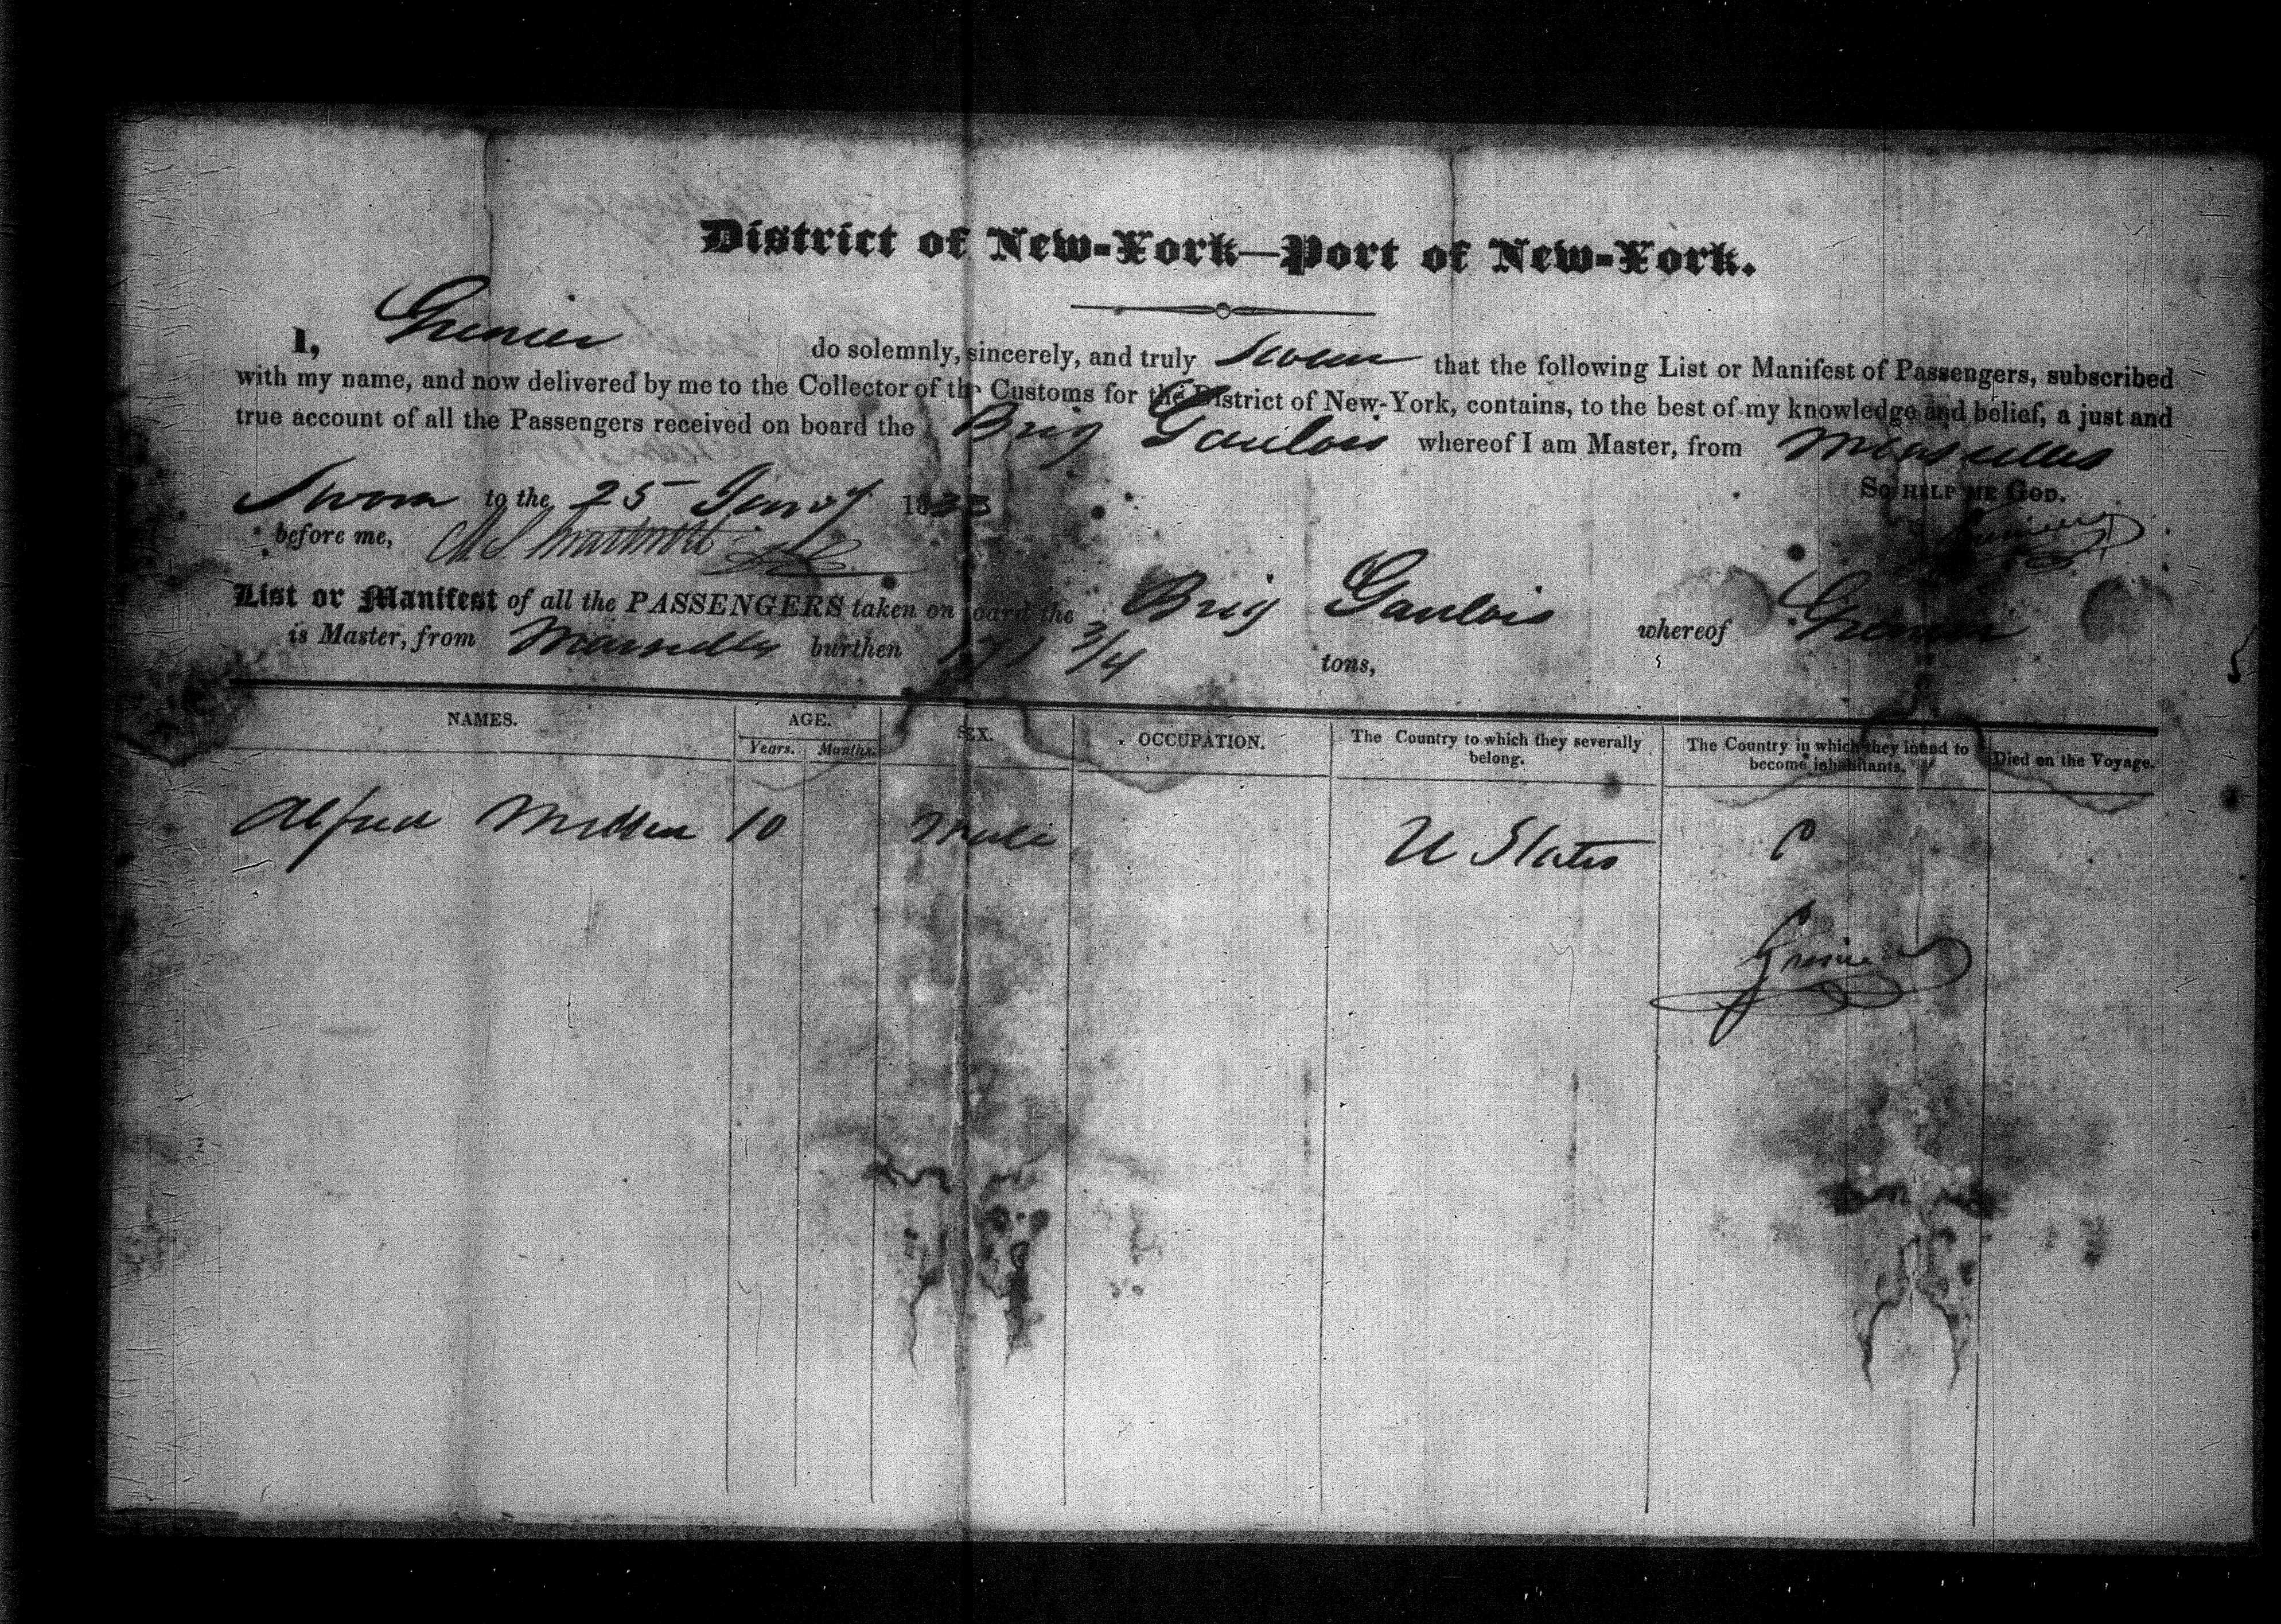 District of New-York—Port of New-York.
I, Grenier do solemnly, sincerely, and truly swear that the following List or Manifest of Passengers, subscribed
with my name, and now delivered by me to the Collector of the Customs for the District of New-York, contains, to the best of my knowledge and belief, a just and
true account of all the Passengers received on board the Brig Gaulois whereof I am Master, from Marseilles
So help me God.
Sworn to the 25 Jany 1833
before me,
Grenier
List or Manifest of all the PASSENGERS taken on board the Brig Gaulois whereof Grenier
is Master, from Marseilles burthen 3/4 tons,
NAMES. AGE. SEX. OCCUPATION. The Country to which they severally belong. The Country in which they intend to become inhabitants. Died on the Voyage.
Years. Months.
Alfred 10 Male U States
Grenier